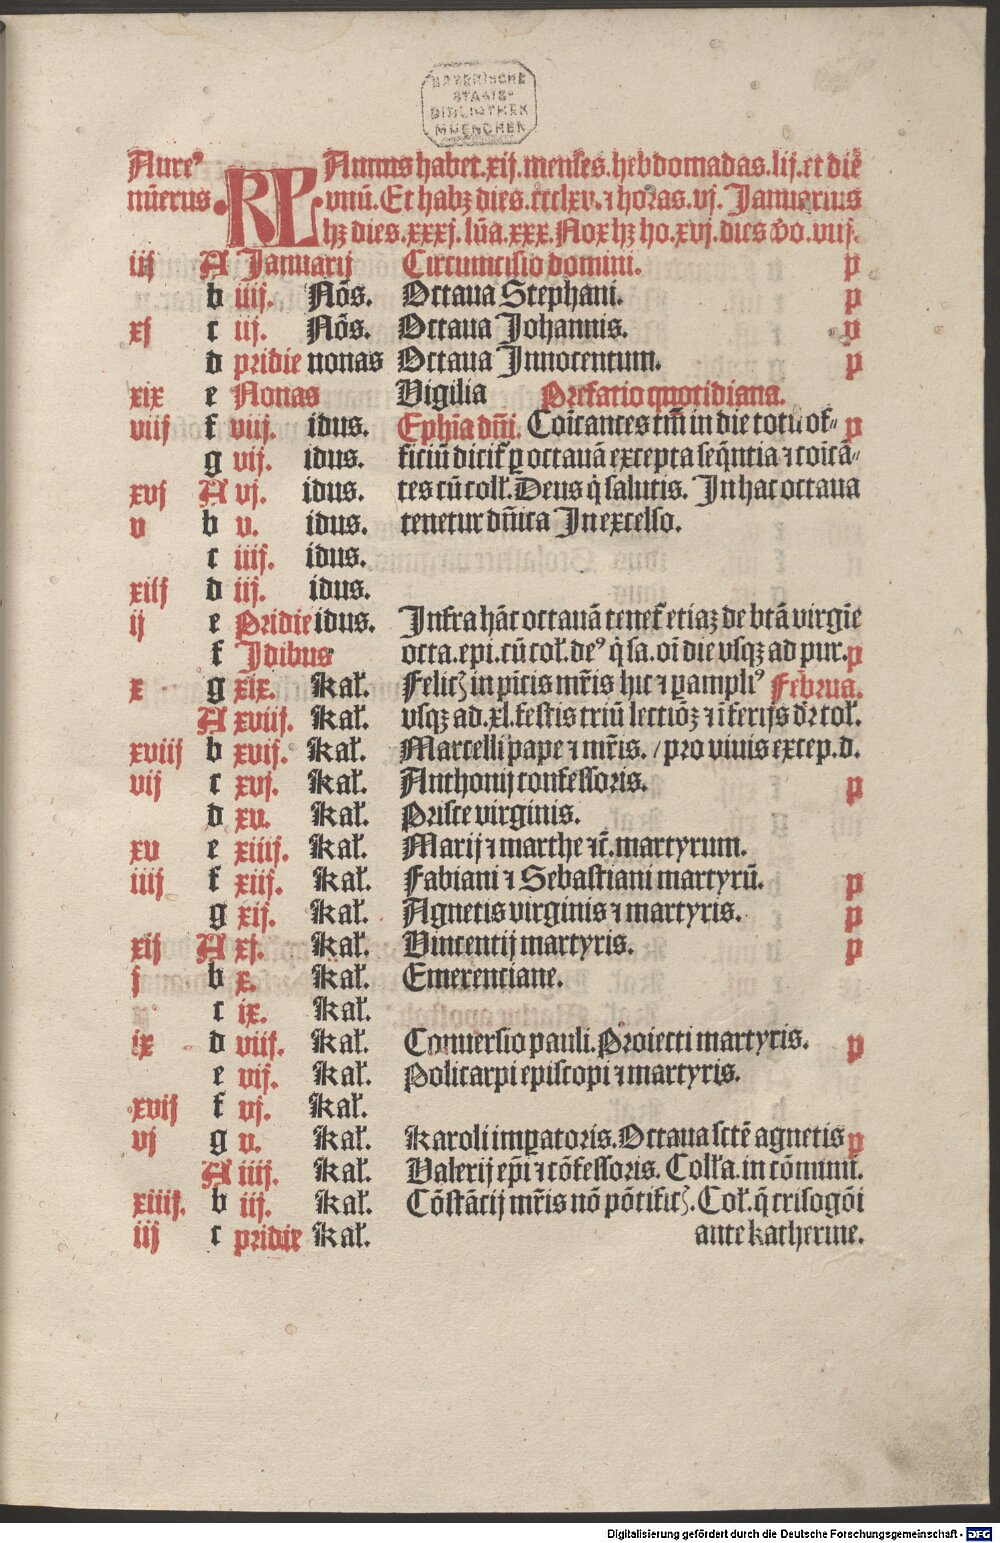 BAYERISCHE
STAATS-
BIBLIOTHEK
MUENCHEN
Aureꝰ KL Annus habet .xij. menses. hebdomadas .lij. et diē
nūerus. vnū. Et habꝫ dies .ccclxv. ⁊ horas .vj. Januarius
hꝫ dies .xxxj. lūa .xxx. Nox hꝫ ho .xvj. dies v̊o .viij.
iij A Januarij Circumcisio domini. p
b iiij. Nōs. Octaua Stephani. p
xj c iij. Nōs. Octaua Johannis. p
d pridie nonas Octaua Innocentum. p
xix e Nonas Vigilia Prefatio quotidiana.
viij f viij. idus. Ephīa dn̄i. Cōicantes tm̄ in die totū of- p
g vij. idus. ficiū dicit᷑ ꝑ octauā excepta seq̄ntia ⁊ cōicā-
xvj A vj. idus. tes cū coll̄. Deus q̇ salutis. In hac octaua
v b v. idus. tenetur dn̄ica In excelso.
c iiij. idus.
xiij d iij. idus.
ij e Pridie idus. Infra hāc octauā tenet᷑ etiaꝫ de btā virgīe
f Idibus octa. epi. cū col̄. deꝰ q̇ sa. oī die vsqꝫ ad pur. p
x g xix. kal̄. Felic̨ in pīcis mr̄is hic ⁊ ꝑ ampliꝰ Februa.
A xviij. kal̄. vsqꝫ ad .xl. festis triū lectiōꝫ ⁊ ī ferijs dr̄ col̄.
xviij b xvij. kal̄. Marcelli pape ⁊ mr̄is. / pro viuis excep. d.
vij c xvj. kal̄. Anthonij confessoris. p
d xv. kal̄. Prisce virginis.
xv e xiiij. kal̄. Marij ⁊ marthe ⁊c̄. martyrum.
iiij f xiij. kal̄. Fabiani ⁊ Sebastiani martyrū. p
g xij. kal̄. Agnetis virginis ⁊ martyris. p
xij A xj. kal̄. Vincentij martyris. p
j b x. kal̄. Emerentiane.
c ix. kal̄.
ix d viij. kal̄. Conuersio pauli. Proiecti martyris. p
e vij. kal̄. Policarpi episcopi ⁊ martyris.
xvij f vj. kal̄.
vj g v. kal̄. Karoli imꝑatoris. Octaua sctē agnetis p
A iiij. kal̄. Valerij epī ⁊ cōfessoris. Coll̄a. in cōmuni.
xiiij. b iij. kal̄. Cōstācij mr̄is nō pōtific̨. Col̄. q̄ crisogōi
iij c pridie kal̄. ante katherine.
Digitalisierung gefördert durch die Deutsche Forschungsgemeinschaft - DFG